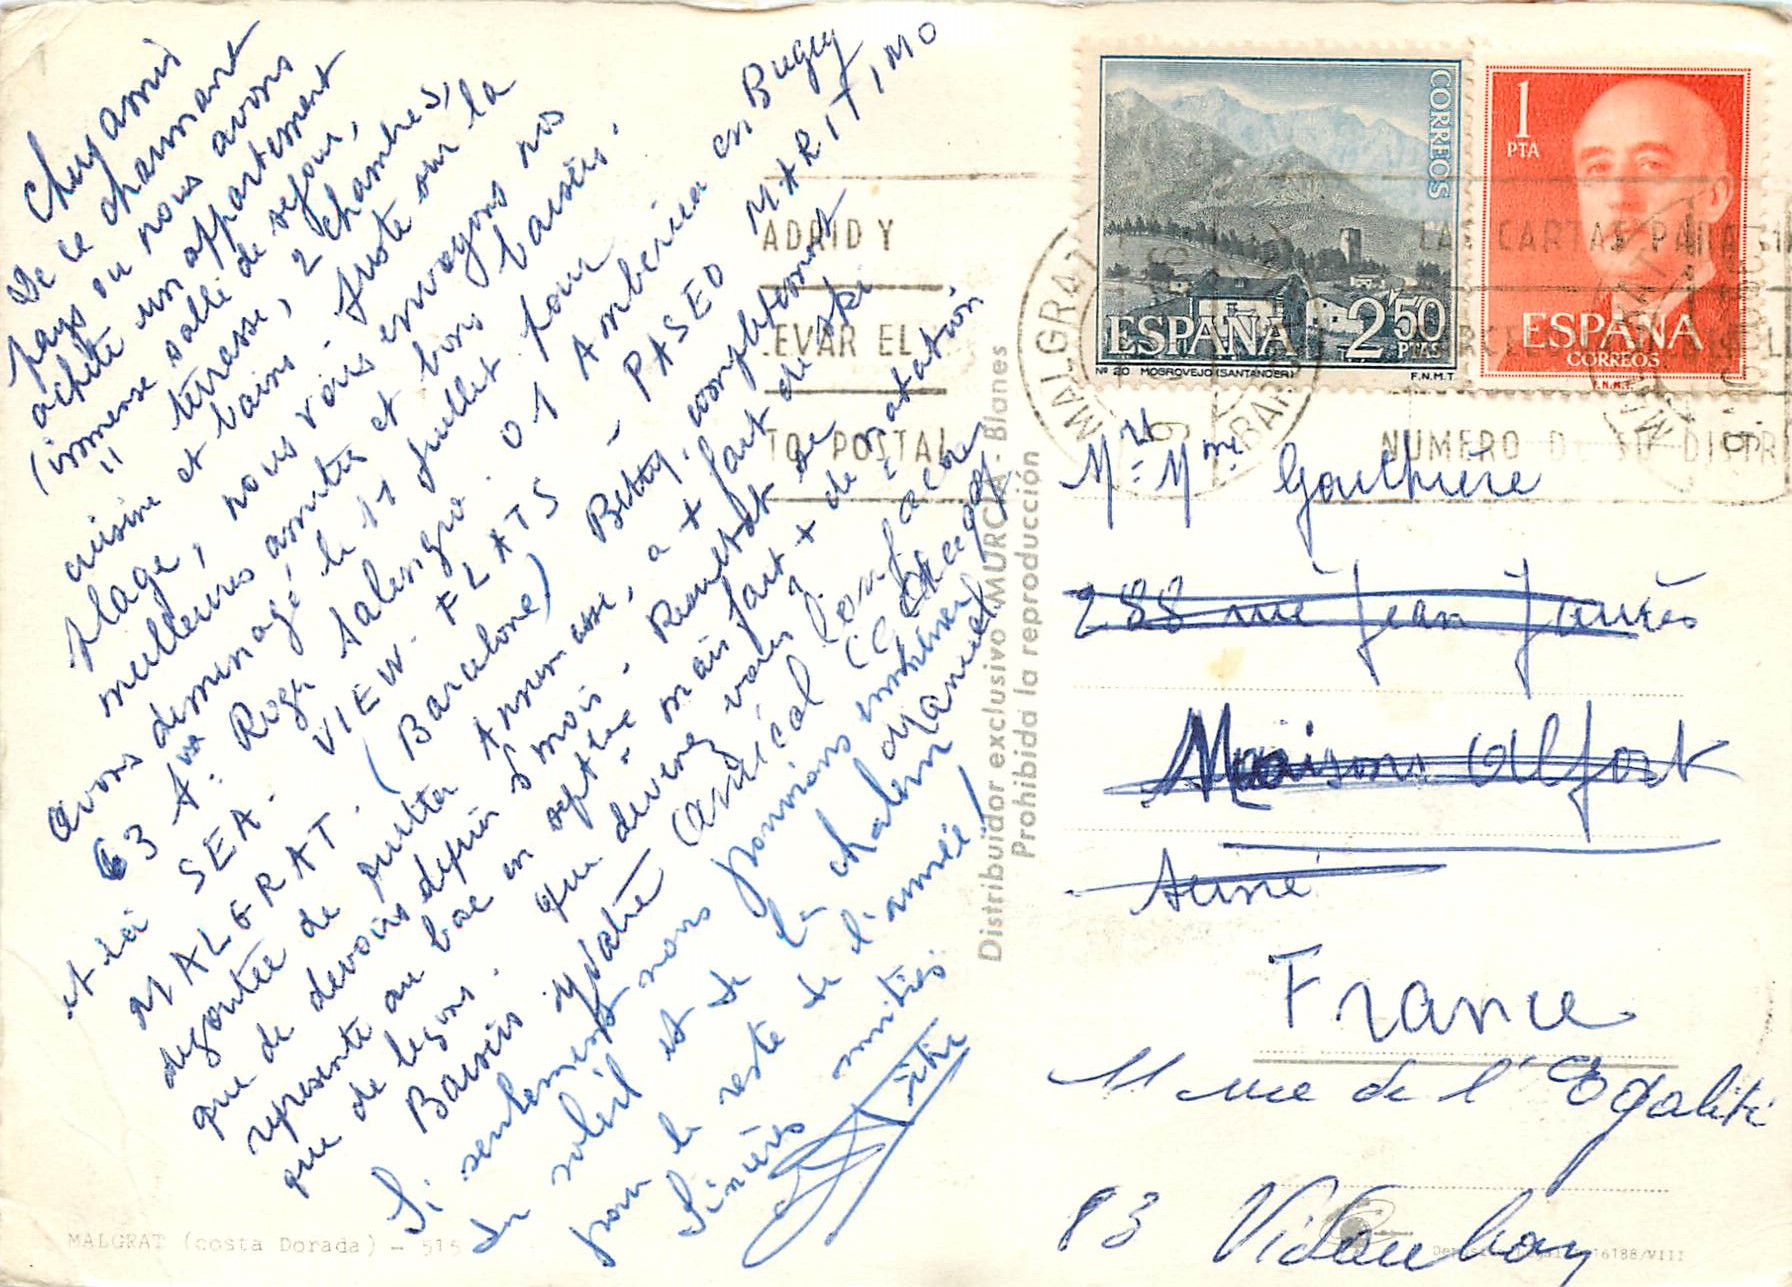 Chers amis
De ce charmant
pays où nous avons
acheté un appartement
(immense salle de séjour,
" terrasse, 2 chambres,
cuisine et bains. Juste sur la
plage, nous vous envoyons nos
meilleures amitiés et bons baisers.
avons déménagé le 11 juillet pour
63 Av. Roger Salengro. 01 Ambérieu en Bugey
et ici SEA. VIEW. FLATS - PASEO MARITIMO
MALGRAT. (Barcelone) Betty, complètement
dégoutée de quitter Annemasse, a + fait de ski
que de devoirs depuis 5 mois. Résultat se
représente au bac en septbre mais fait + de natation
que de leçons. que devenez vous?
Baisers
Si seulement nous pouvions emmener
du soleil et de la chaleur
pour le reste de l'année!
Sincères amitiés
MALGRAT (costa Dorada) - 515
Distribuidor exclusivo MURCIA - Blanes
Prohibida la reproducción
CORREOS
ESPAÑA 2'50 PTAS
Nº 20 MOGROVEJO (SANTANDER) F.N.M.T.
1 PTA
ESPAÑA
CORREOS
F.N.M.T.
ADRID Y
LEVAR EL
TO POSTAL
MALGRAT
LAS CARTAS PARA
NUMERO DE SU DISTRI
Mr Mme Gauthière
288 rue Jean Jaurès
Maisons Alfort
Seine
France
11 rue de l'Egalité
83 Vidauban
16188/VIII